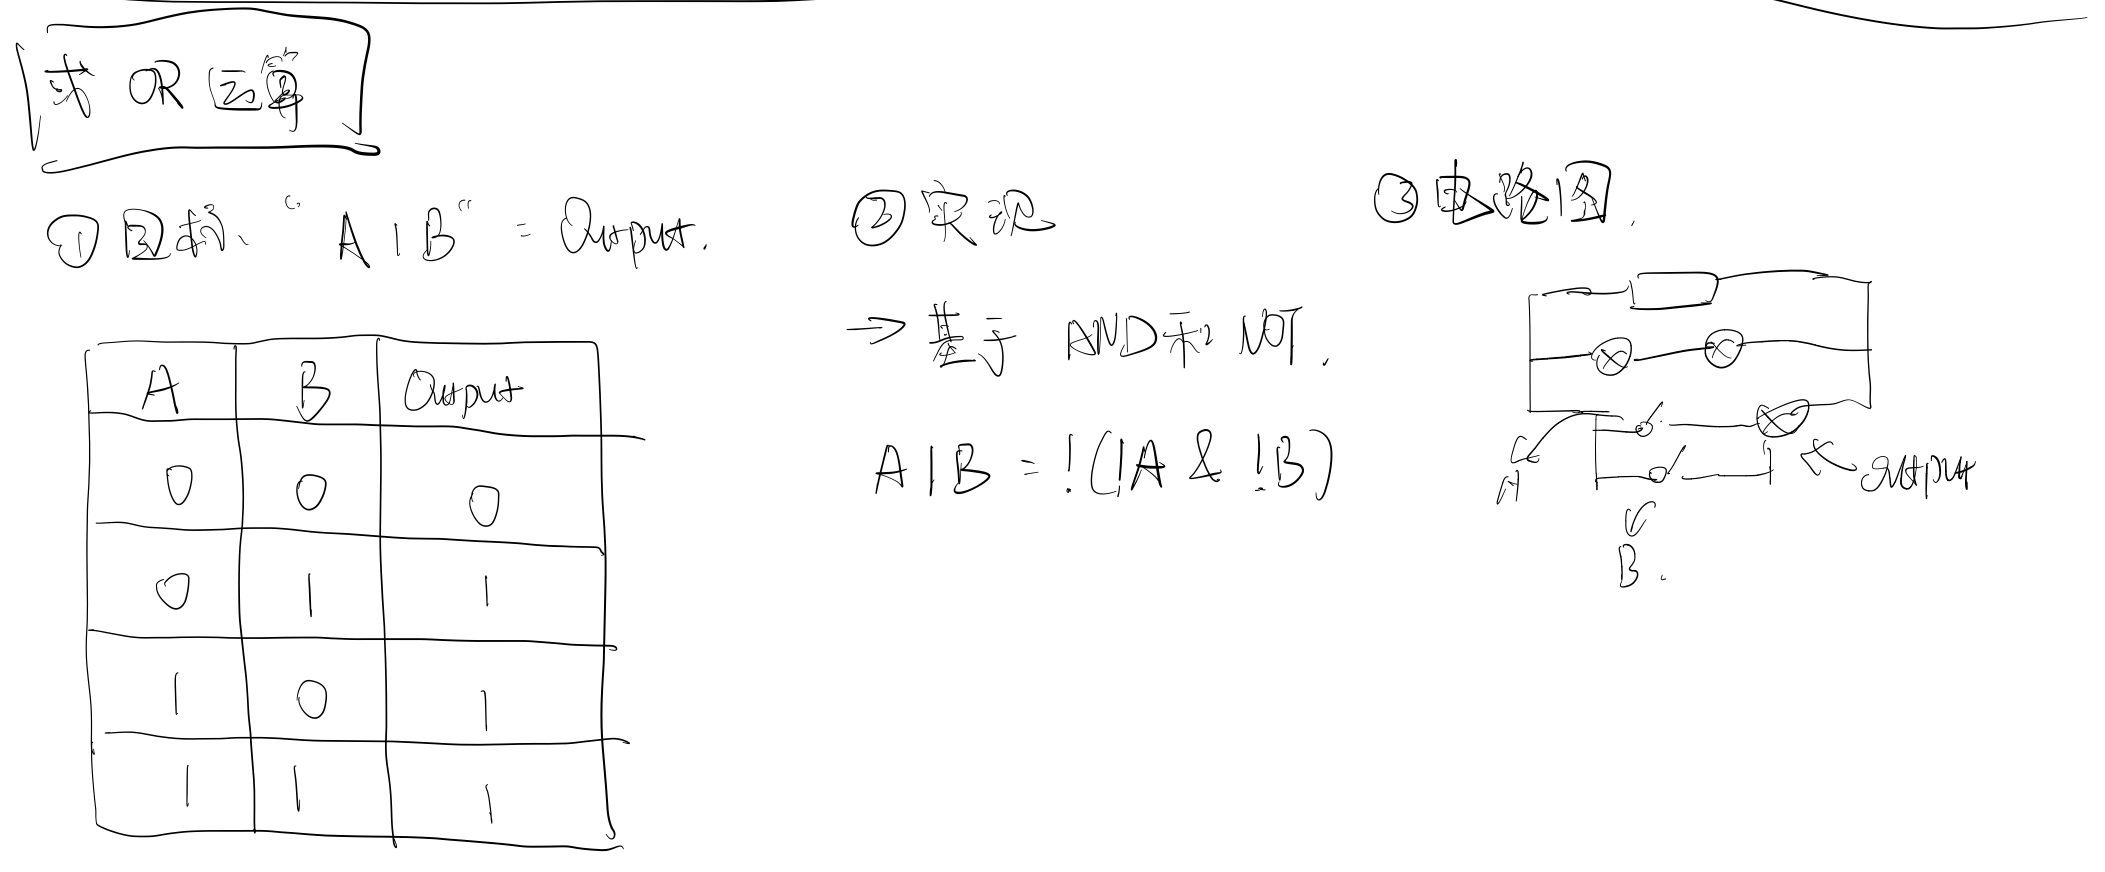 求 OR 运算
① 目标、"A | B" = Output.
A B Output
0 0 0
0 1 1
1 0 1
1 1 1
② 实现
→ 基于 AND 和 NOT.
A | B = !(!A & !B)
③ 电路图.
A
Output
B.